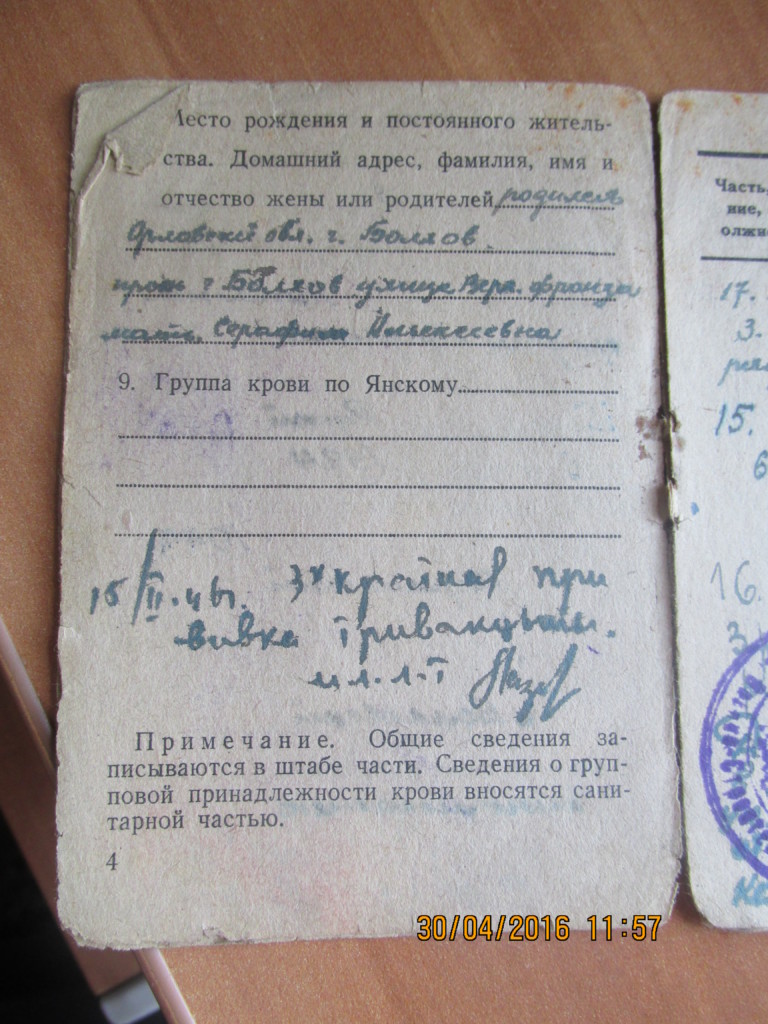 Место рождения и постоянного житель-
ства. Домашний адрес, фамилия, имя и
отчество жены или родителей родился
Орловской обл. г. Болхов
г Болхов улица
мать Серафима Алексеевна
9. Группа крови по Янскому
15/II.4 3х кратная при
вивка Тривакцины.
4
Примечание. Общие сведения за-
писываются в штабе части. Сведения о груп-
повой принадлежности крови вносятся сани-
тарной частью.
4
Часть,
ние,
олжн
17.
3.
15.
6
16.
3
30/04/2016 11:57